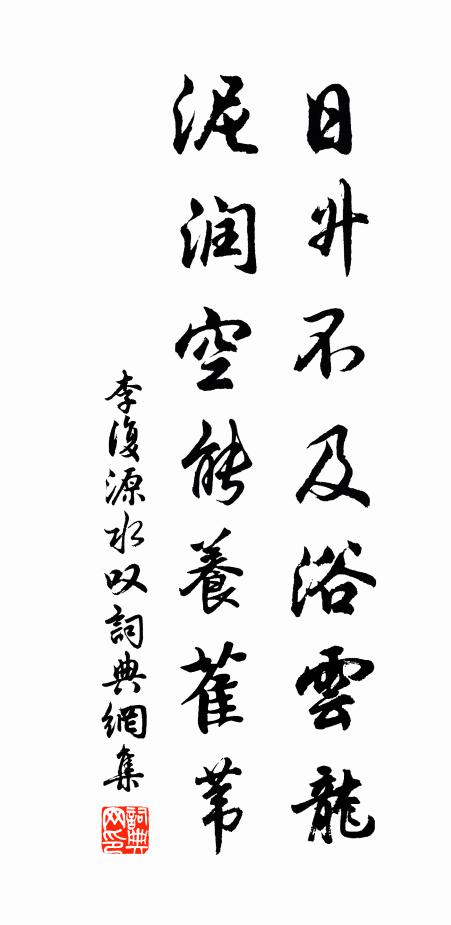 日升不及浴雲龍
泥润空能養萑苇
李復源水叹詞典網集
詞典网印